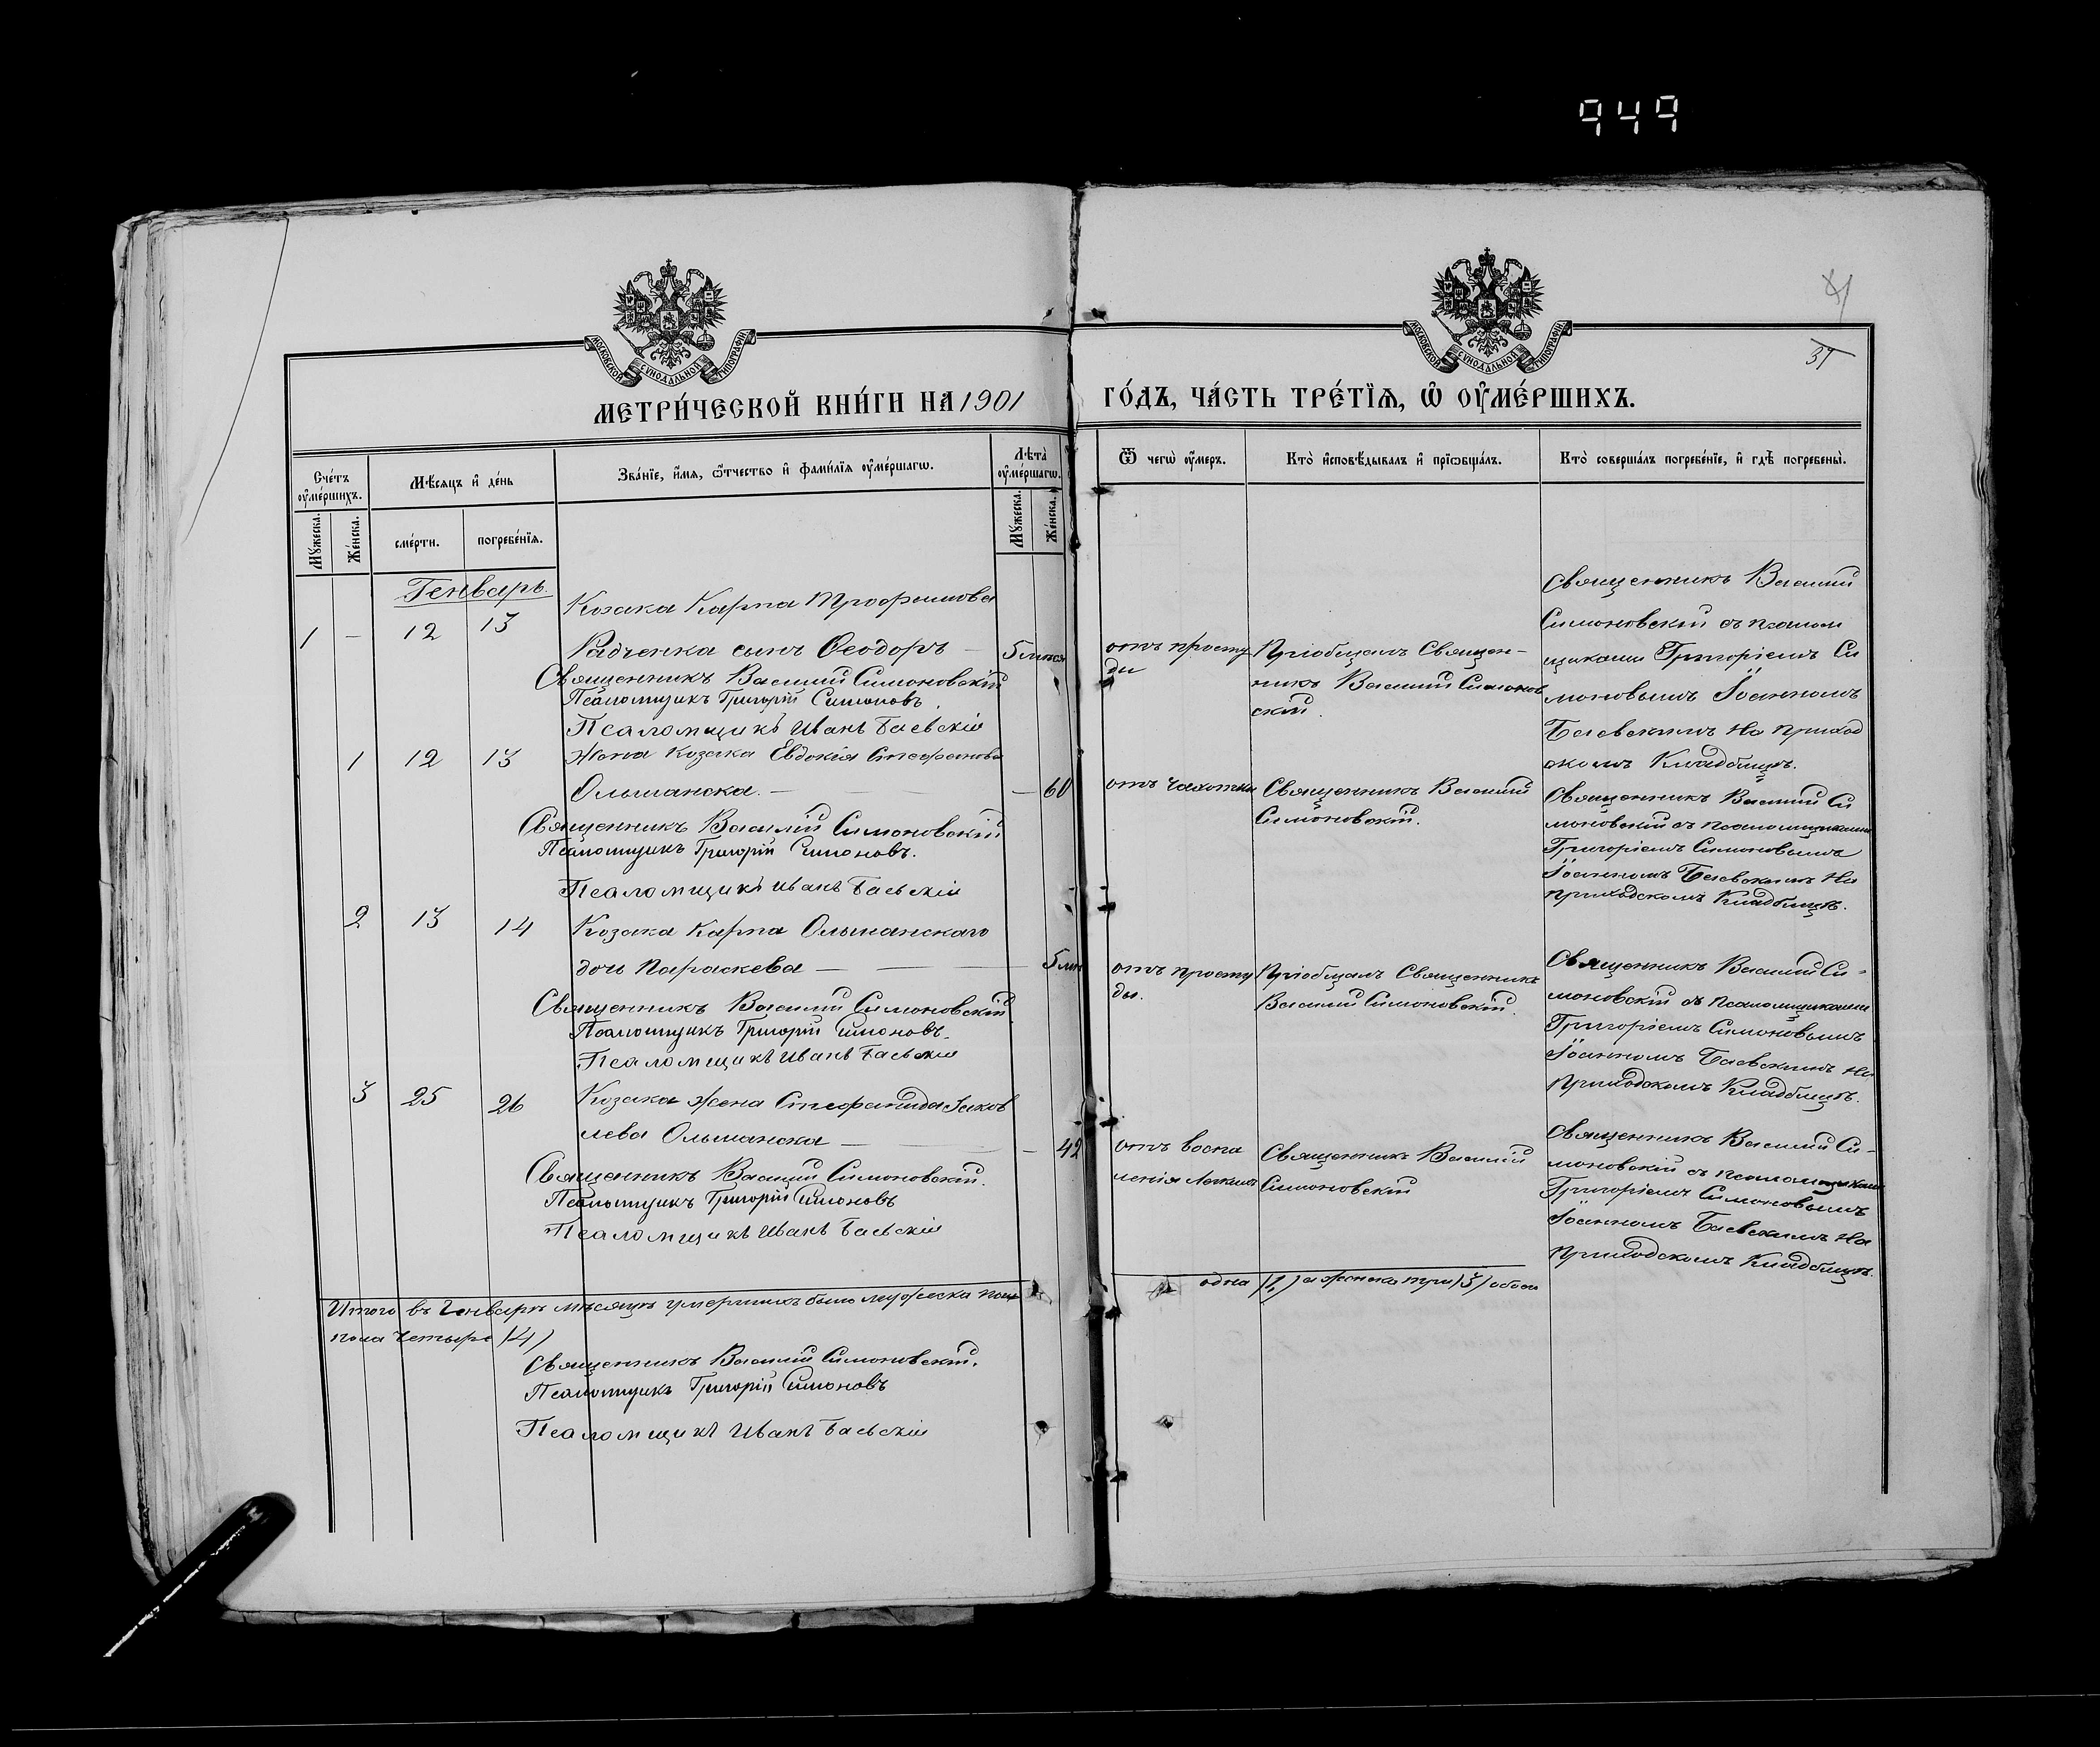 949
41
31
МОСКОВСКОЙ СѴНОДАЛЬНОЙ ТИПОГРАФІИ
МОСКОВСКОЙ СѴНОДАЛЬНОЙ ТИПОГРАФІИ
МЕТРИ́ЧЕСКОЙ КНИ́ГИ НА 1901
ГО́ДЪ, ЧА́СТЬ ТРЕ́ТЇѦ, Ѡ҆ ОУ҆МЕ́РШИХЪ.
Сче́тъ оу҆ме́ршихъ.
Мѣ́сяцъ и҆ де́нь
Зва́нїе, и҆́мѧ, ѻ҆́тчество и҆ фами́лїѧ оу҆ме́ршагѡ.
Лѣ́та оу҆ме́ршагѡ.
Ѿ чегѡ̀ оу҆́меръ.
Кто̀ и҆сповѣ́дывалъ и҆ прїѡбща́лъ.
Кто̀ соверша́лъ погребе́нїе, и҆ гдѣ̀ погребены̀.
Мꙋ́жеска.
Же́нска.
сме́рти.
погребе́нїѧ.
Мꙋ́жеска.
Же́нска.
Генварь.
1 — 12 13
Козака Карпа Трофимова
Радченка сынъ Ѳеодоръ — 5 мѣся
Священникъ Василій Симоновскій
Псаломщикъ Григорій Симоновъ.
Псаломщикъ Иванъ Баевскій
отъ просту
ды
Пріобщалъ Священ-
никъ Василій Симонов
скій.
Священникъ Василій
Симоновскій съ псалом
щиками Григоріемъ Си
моновымъ Іоанномъ
Баевскимъ на приход
скомъ Кладбищѣ.
1 12 13
Жена козака Евдокія Стефанова
Ольшанска. — — 60
Священникъ Василій Симоновскій
Псаломщикъ Григорій Симоновъ.
Псаломщикъ Иванъ Баевскій
отъ чахотки
Священникъ Василій
Симоновскій.
Священникъ Василій Си
моновскій съ псаломщиками
Григоріемъ Симоновымъ
Іоанномъ Баевскимъ на
приходскомъ Кладбищѣ.
2 13 14
Козака Карпа Ольшанскаго
дочь Параскева — 5 мѣ
Священникъ Василій Симоновскій
Псаломщикъ Григорій Симоновъ.
Псаломщикъ Иванъ Баевскій
отъ просту
ды.
Пріобщалъ Священникъ
Василій Симоновскій.
Священникъ Василій Си-
моновскій съ псаломщиками
Григоріемъ Симоновымъ
Іоанномъ Баевскимъ на
приходскомъ Кладбищѣ.
3 25 26
Козака жена Стефанида Іаков
лева Ольшанска — — 42
Священникъ Василій Симоновскій.
Псаломщикъ Григорій Симоновъ
Псаломщикъ Иванъ Баевскій
отъ воспа
ленія легкихъ
Священникъ Василій
Симоновскій
Священникъ Василій Си-
моновскій съ псаломщиками
Григоріемъ Симоновымъ
Іоанномъ Баевскимъ на
приходскомъ Кладбищѣ.
Итого въ Генварѣ мѣсяцѣ умершихъ было мужеска пола
одна (1) а женска три (3) обоего
пола четыре (4)
Священникъ Василій Симоновскій.
Псаломщикъ Григорій Симоновъ
Псаломщикъ Иванъ Баевскій